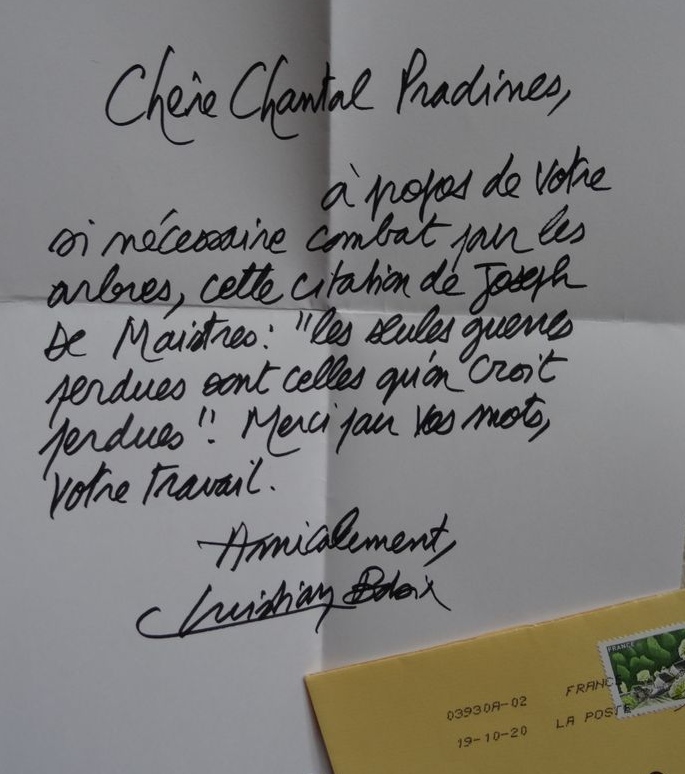 Chère Chantal Pradines,
à propos de votre
si nécessaire combat pour les
arbres, cette citation de Joseph
de Maistres : "les seules guerres
perdues sont celles qu'on croit
perdues"! Merci pour vos mots,
votre travail.
Amicalement,
Christian
FRANCE
03930A-02 FRANCE
19-10-20 LA POSTE